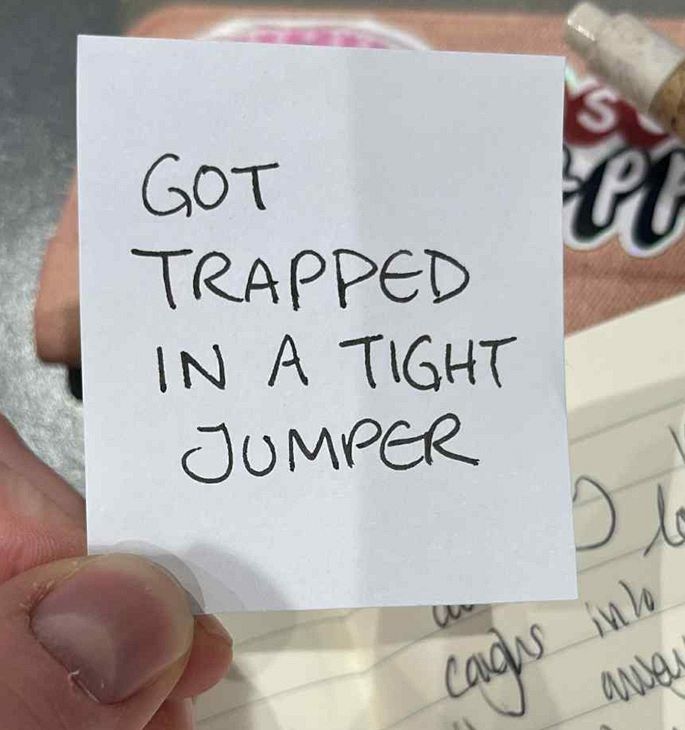 GOT
TRAPPED
IN A TIGHT
JUMPER
into